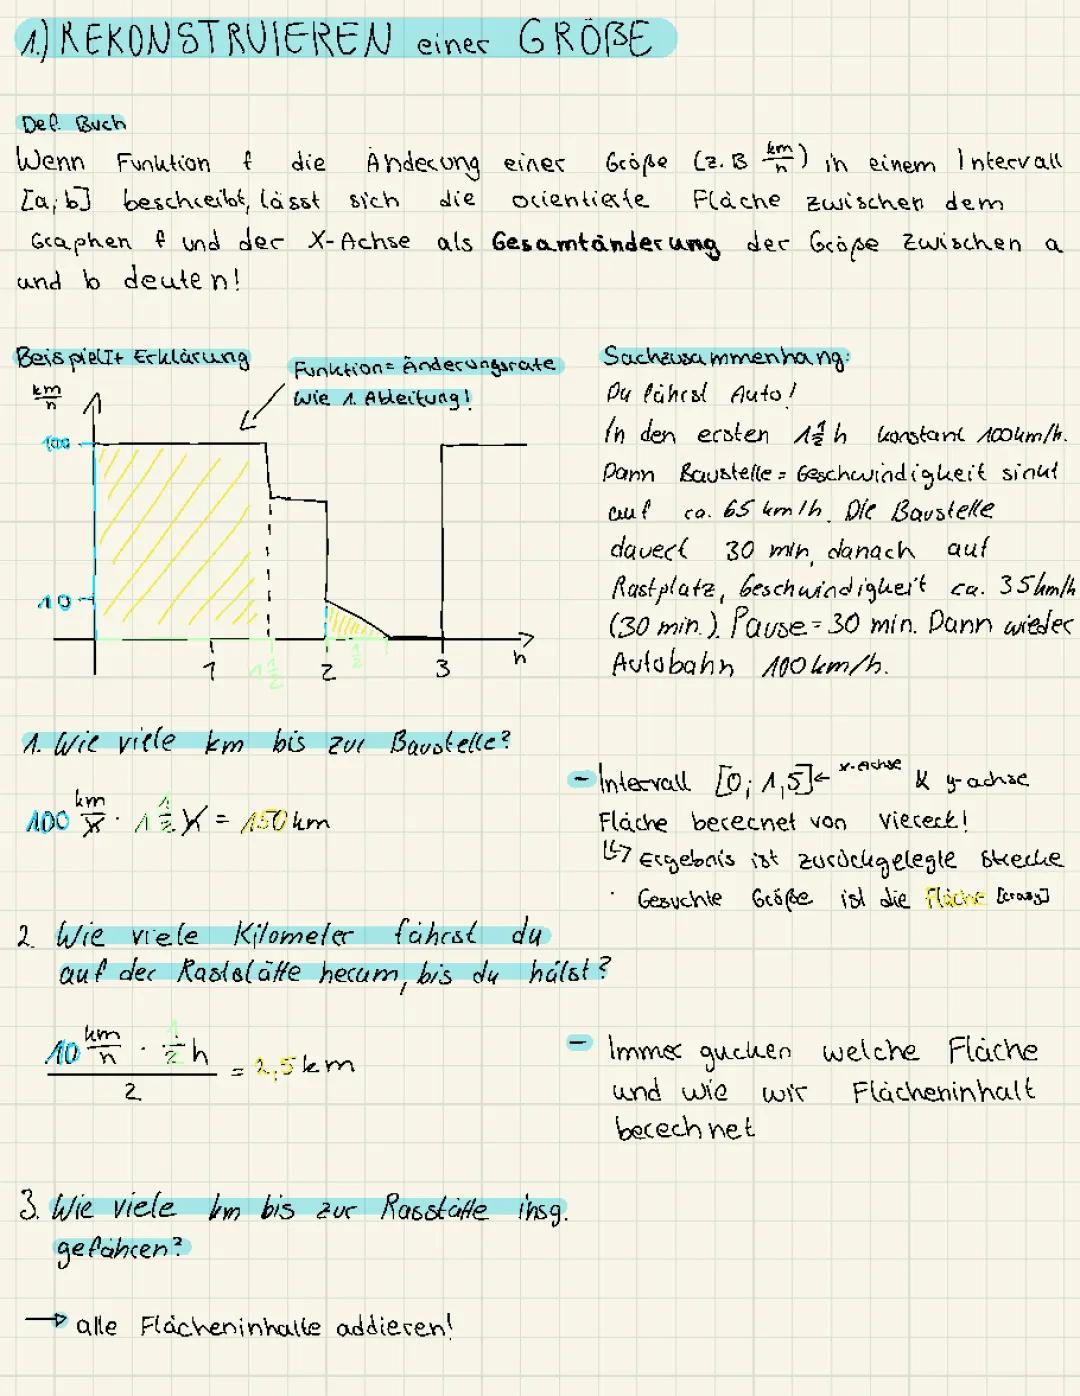 1.) REKONSTRUIEREN einer GRÖßE
Def. Buch
Wenn Funktion f die Änderung einer Größe (z.B km/h) in einem Intervall
[a;b] beschreibt, lässt sich die orientierte Fläche zwischen dem
Graphen f und der X-Achse als Gesamtänderung der Größe zwischen a
und b deuten!
Beispiel It Erklärung
Funktion = Änderungsrate
wie 1. Ableitung!
km/h
100
10
1
1 1/2
2
1/2
3
h
Sachzusammenhang:
Du fährst Auto!
In den ersten 1 1/2 h konstant 100km/h.
Dann Baustelle = Geschwindigkeit sinkt
auf ca. 65 km/h. Die Baustelle
dauert 30 min, danach auf
Rastplatz, Geschwindigkeit ca. 35km/h
(30 min.). Pause = 30 min. Dann wieder
Autobahn 100km/h.
1. Wie viele km bis zur Baustelle?
100 km/h · 1 1/2 h = 150 km
- Intervall [0; 1,5] ← x-Achse & y-achse
Fläche berecnet von Viereck!
↳ Ergebnis ist zurückgelegte Strecke
· Gesuchte Größe ist die Fläche [crazy]
2. Wie viele Kilometer fährst du
auf der Raststätte herum, bis du hälst?
10 km/h · 1/2 h / 2 = 2,5 km
- Immer gucken welche Fläche
und wie wir Flächeninhalt
berechnet
3. Wie viele km bis zur Rasstätte insg.
gefahren?
→ alle Flächeninhalte addieren!